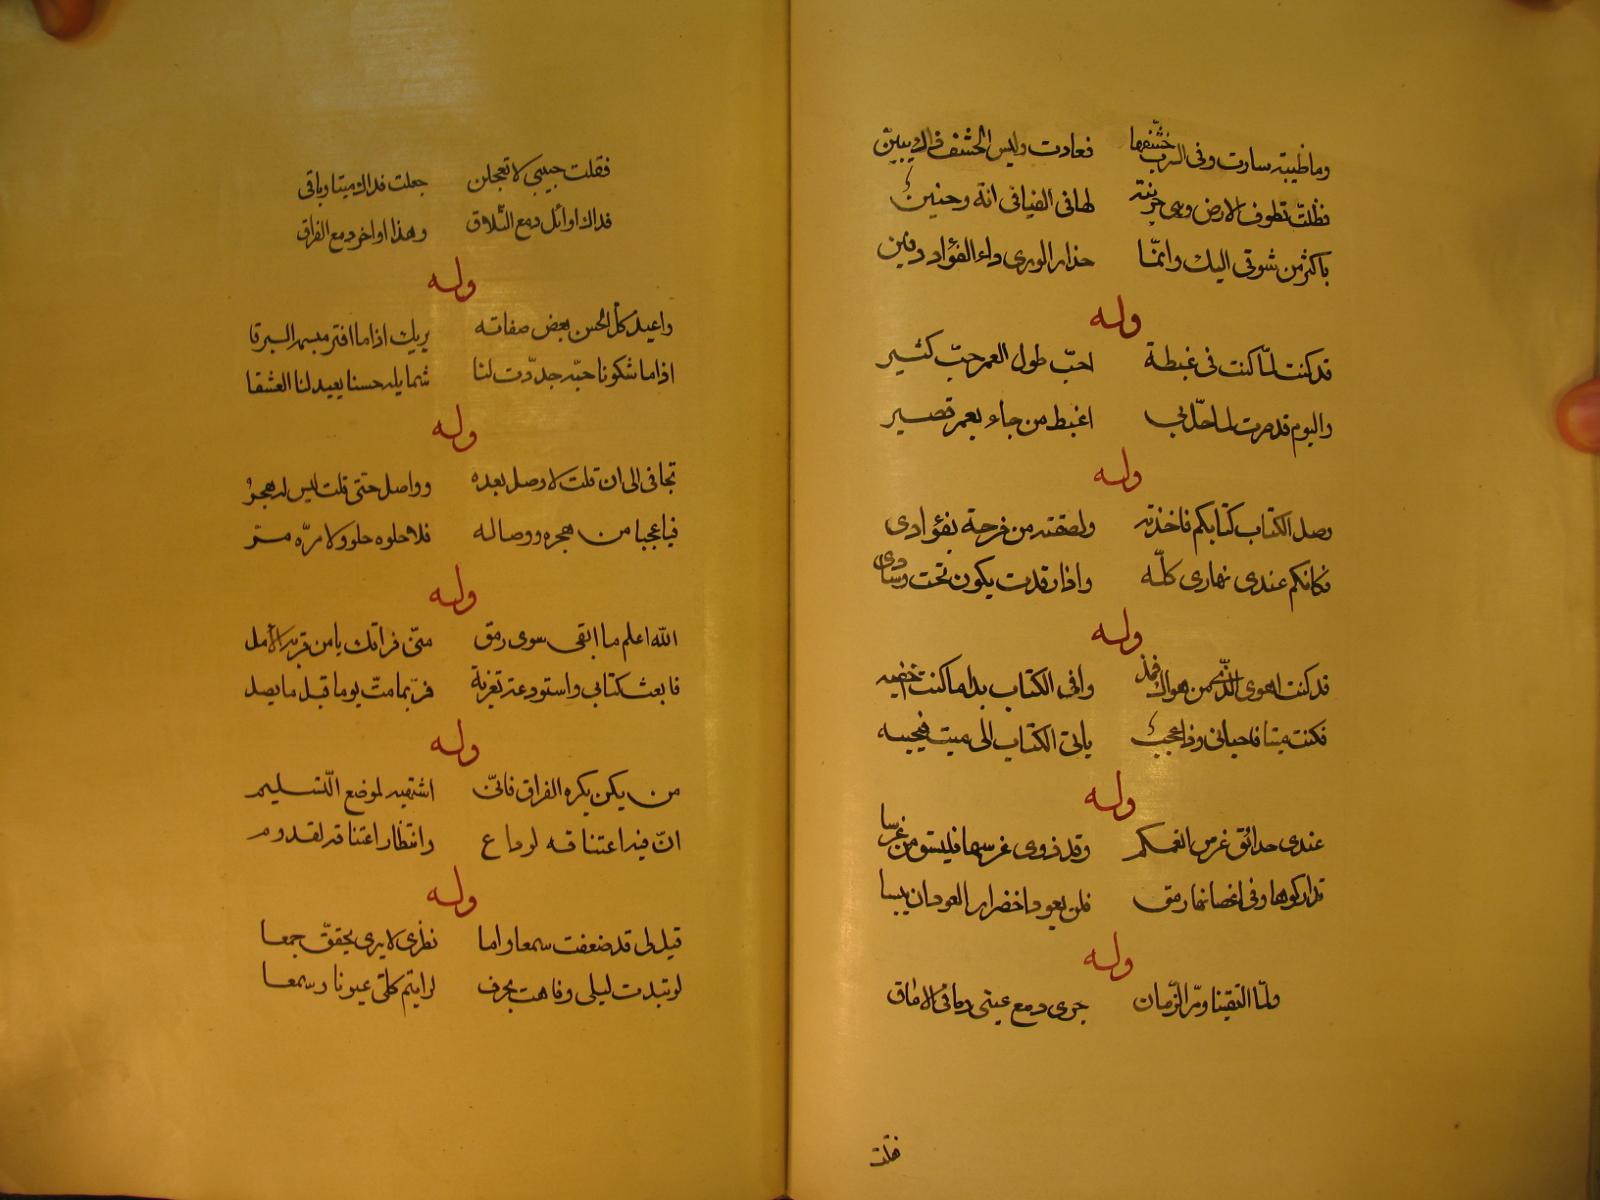 وما ظبية سارت وفى السرب خشفها فعادت وليس الخشف ذاك يبين
فظلت تطوف الارض وهى حزينة لها فى الفيافى انة وحنين
باكثر من شوقى اليك وانما حذار الورى داء الفؤاد دفين
وله
قد كنت لما كنت فى غبطة احب طول العمر حب كثير
واليوم قد صرت لما حل بى اغبط من جاء بعمر قصير
وله
وصل الكتاب كتابكم فاخذته ولصقته من فرحة بفؤادى
فكانكم عندى نهارى كله واذا رقدت يكون تحت وسادى
وله
قد كنت اهوى من هواك فمذ وافى الكتاب بدا ما كنت اخفيه
فكنت ميتا فاحيانى وذا عجب ياتى الكتاب الى ميت فيحييه
وله
عندى حدائق غرس انعمكم وقد ذوى غرسها فليسق من غرسا
تداركوها وفى اغصانها رمق فلن يعود اخضرار العود ان يبسا
وله
ولما التقينا ومر الزمان جرى دمع عينى دما فى الاماق
فقلت
فقلت حبيبى لا تعجلن جعلت فداك ميتا وباقى
فذاك اوائل دمع التلاق وهذا اواخر دمع الفراق
وله
واغيد كل الحسن بعض صفاته يريك اذا ما افتر مبسمه البرقا
اذا ما شكونا حبه جددت لنا شمايله حسنا يعيد لنا العشقا
وله
تجافى الى ان قلت لا وصل بعده وواصل حتى قلت ليس له هجر
فيا عجبا من هجره ووصاله فلا حلوه حلو ولا مره مر
وله
الله اعلم ما ابقى سوى رمق منى فراقك يا من قربه الامل
فابعث كتابى واستودعه تعزية فربما مت يوما قبل ما يصل
وله
من يكن يكره الفراق فانى اشتهيه لموضع التسليم
ان فيه اعتناقه لوداع وانتظار اعتناقه لقدوم
وله
قيل لى قد ضعفت سمعا واما نظرى لا يرى يحقق جمعا
لو تبدت ليلى وفاهت بحرف لرايتم كلى عيونا وسمعا